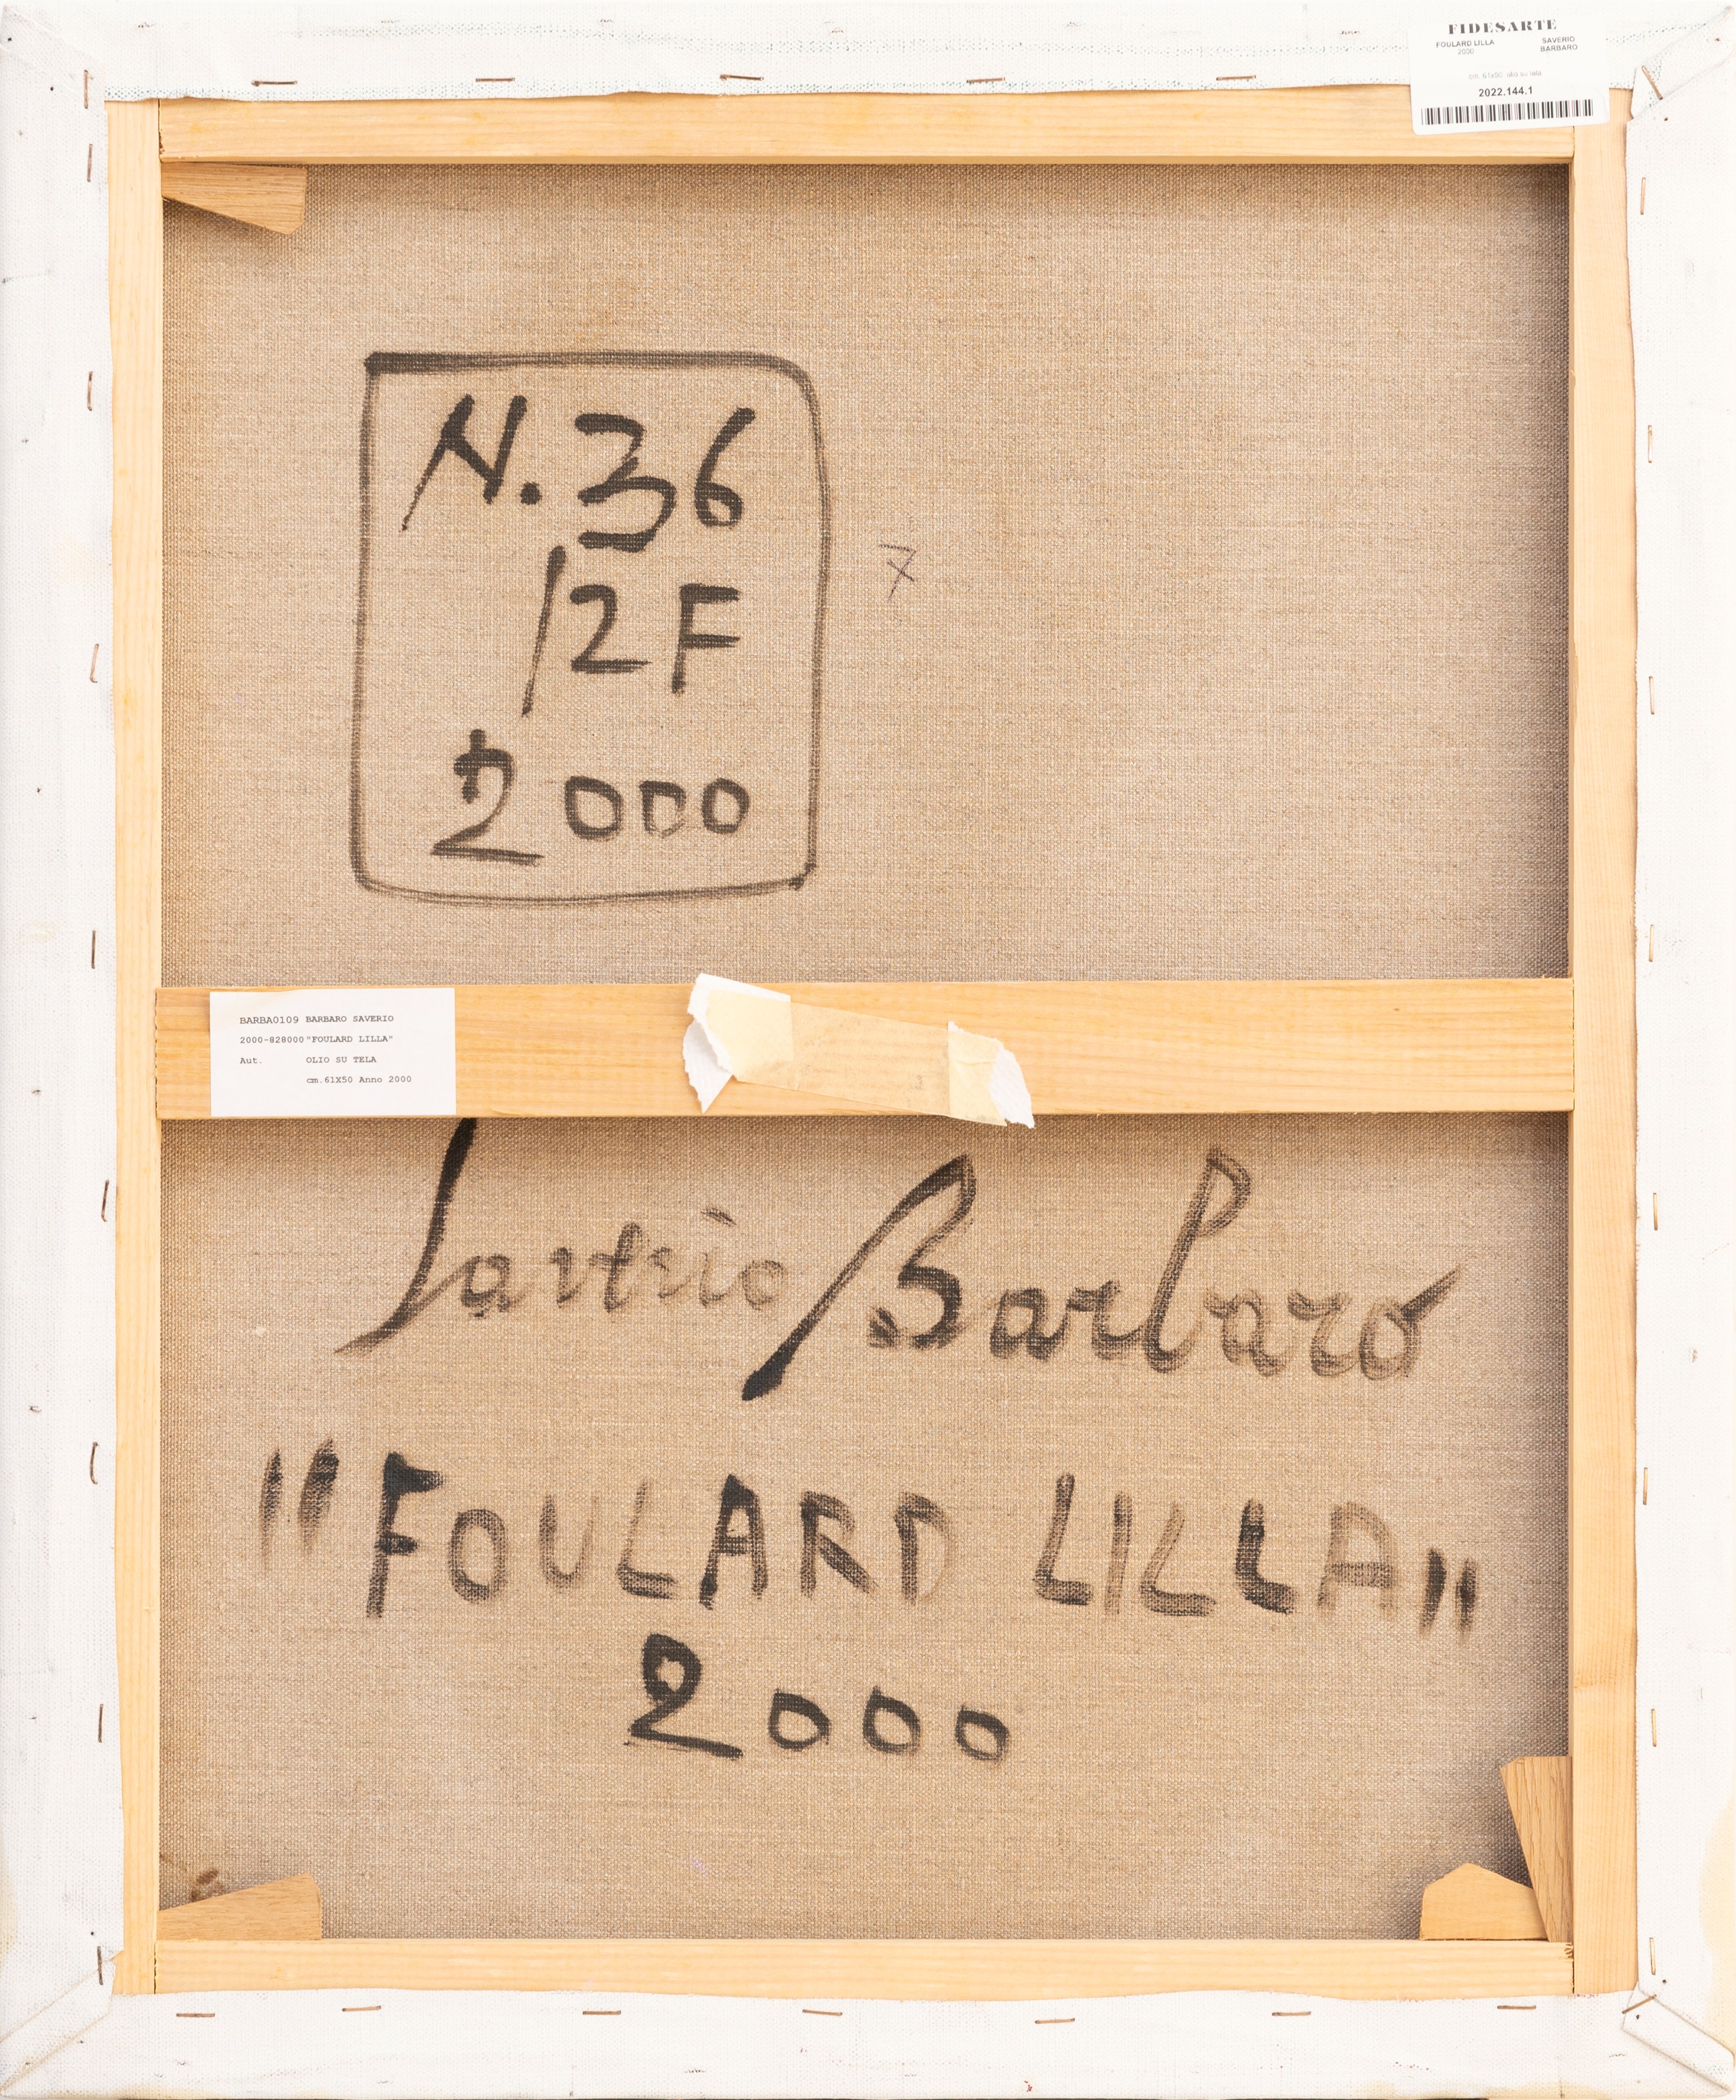 FIDESARTE
FOULARD LILLA SAVERIO
2000 BARBARO
cm. 61x50 olio su tela
2022.144.1
N. 36
12 F
2000
7
BARBA0109 BARBARO SAVERIO
2000-828000 "FOULARD LILLA"
Aut. OLIO SU TELA
cm. 61X50 Anno 2000
Saverio Barbaro
"FOULARD LILLA"
2000